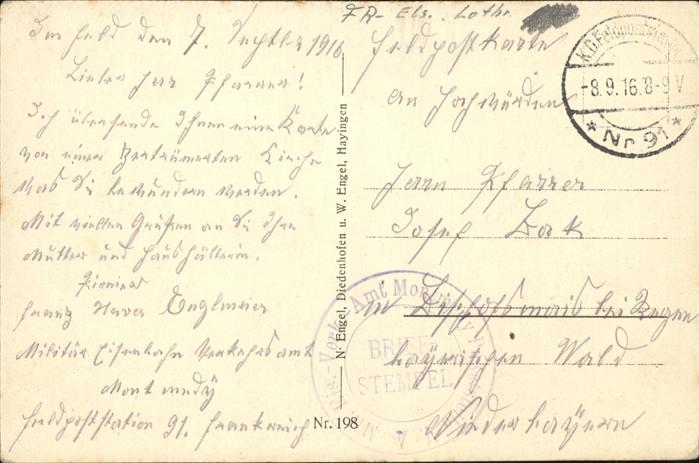 FR- Els. Lothr.
Im Feld den 7. Septbr 1916
Lieber Herr Pfarrer!
Ich übersende Ihnen eine Karte
von einer Zertrümerten Kirche
was Sie bewundern werden.
Mit vielen Grüßen an Sie Ihre
Mutter und Haushälterin.
Pionier
Franz Xaver Englmeier
Militär Eisenbahn Verkehrsamt
Montmedy
Feldpoststation 91. Frankreich
N. Engel, Diedenhofen u. W. Engel, Hayingen
Nr. 198
Feldpostkarte
An Hochwürden
Herrn Pfarrer
Josef
in Bischofsmais bei Regen
bayrischen Wald
Niederbayern
K.D. Feldpoststation
-8.9.16.8-9 V
* Nr 91 *
Amt Montmedy
BRIEF
STEMPEL